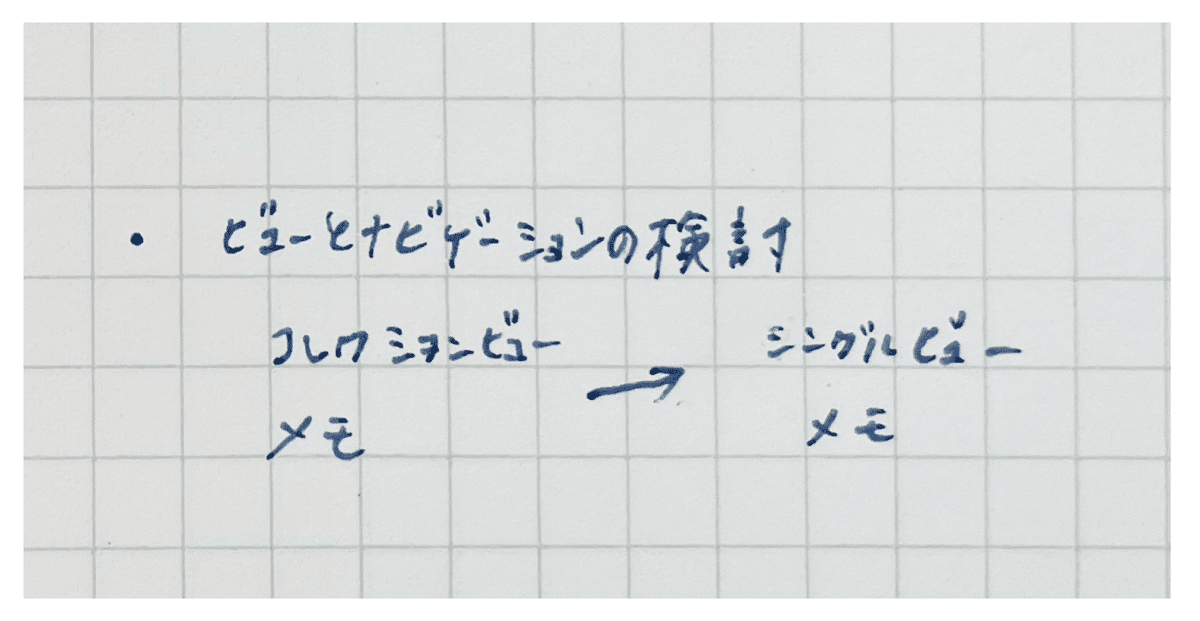 ・ ビューとナビゲーションの検討
コレクションビュー → シングルビュー
メモ メモ